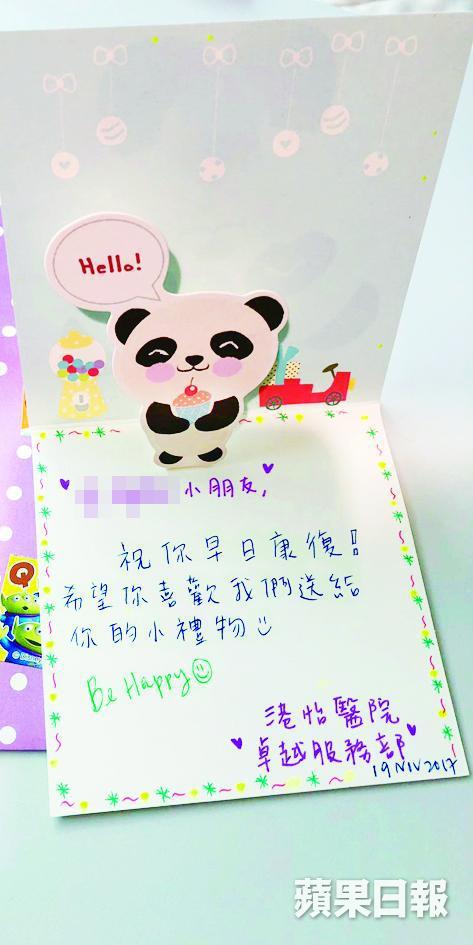 Hello!
小朋友,
祝你早日康復!
希望你喜歡我們送給
你的小禮物
Be Happy
港怡醫院
卓越服務部
19 NOV 2017
Q
蘋果日報